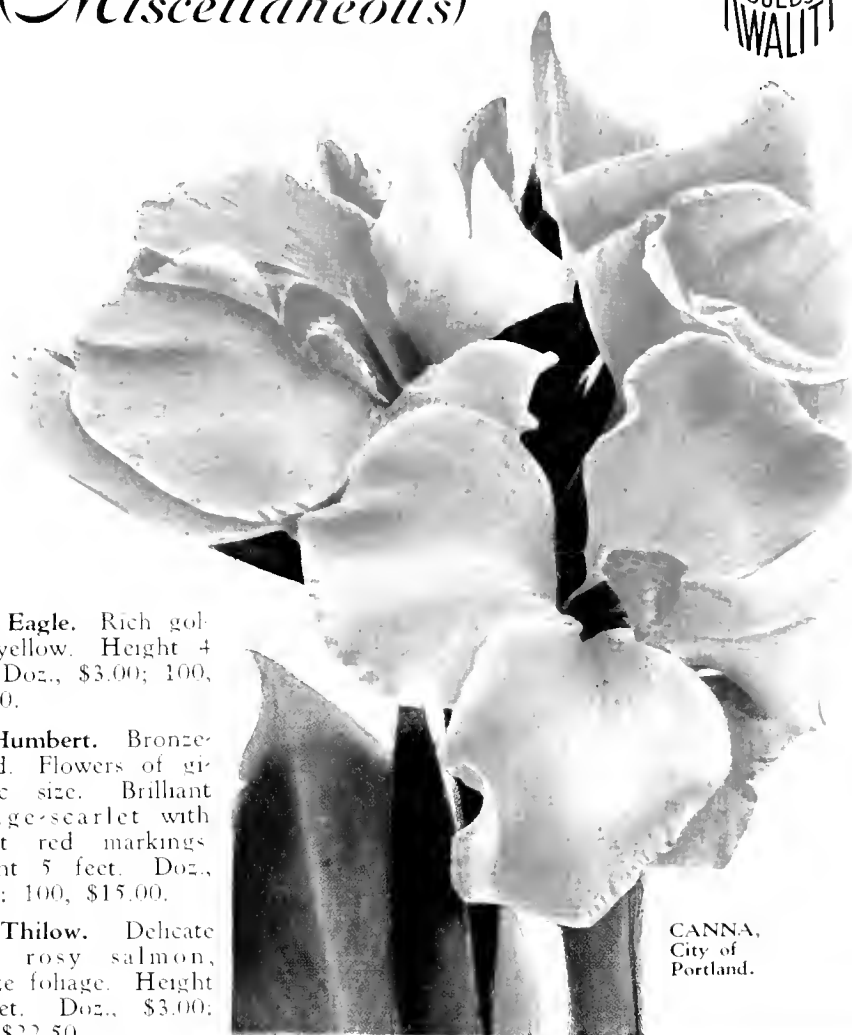 (Miscellaneous)
WALIT
Eagle. Rich gol-
yellow. Height 4
Doz., $3.00; 100,
0.
Humbert. Bronze-
d. Flowers of gi-
c size. Brilliant
ge-scarlet with
t red markings
ht 5 feet. Doz.,
; 100, $15.00.
Thilow. Delicate
rosy salmon,
ze foliage. Height
et. Doz., $3.00;
$22.50
CANNA,
City of
Portland.